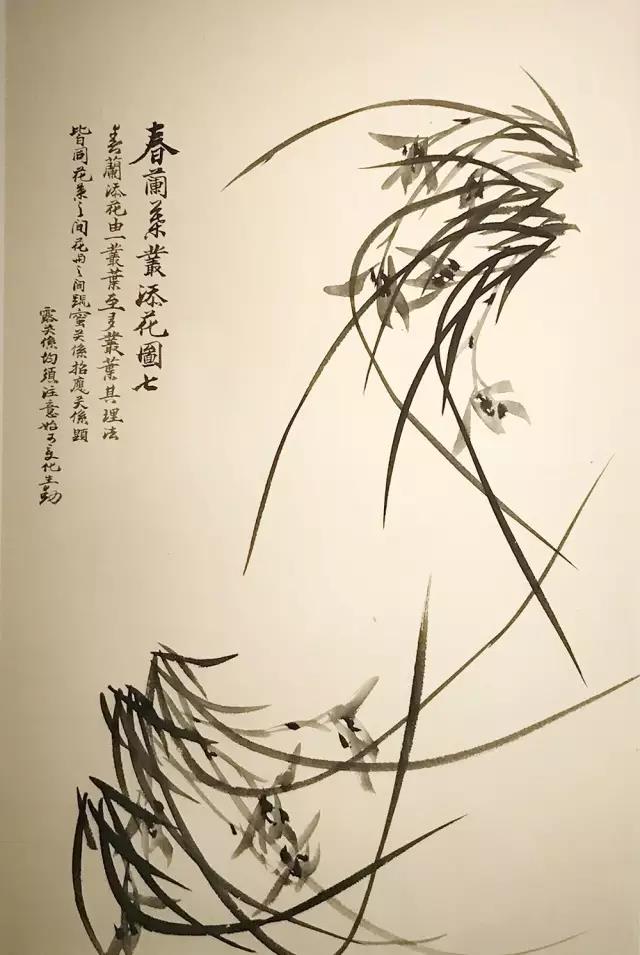 春蘭葉叢添花圖七
春蘭添花由一叢葉至多叢葉其理法
皆同花葉之間花与之間疏蜜关係招應关係顕
露关係均須注意始可变化生動